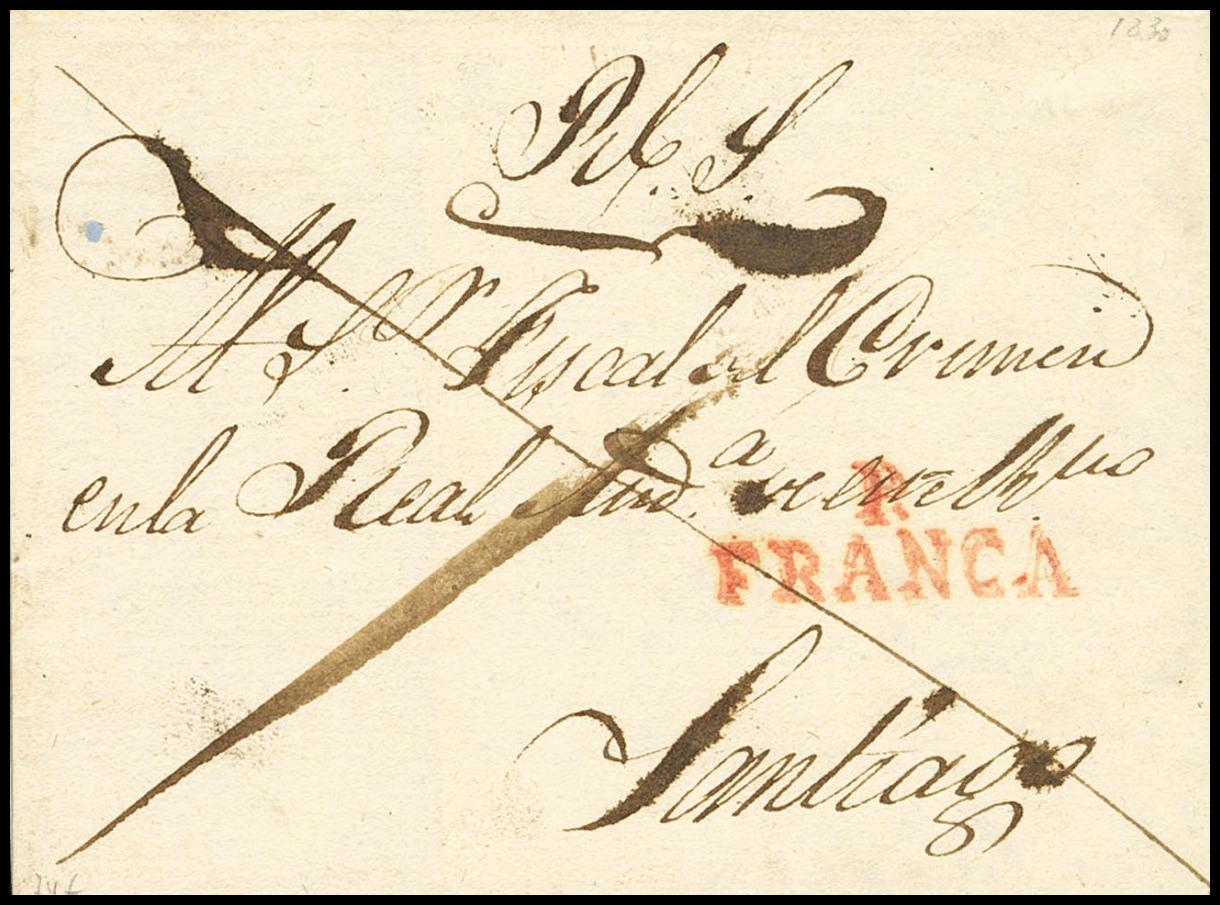 1830
Rl. S.
Al Sr. Fiscal del Crimen
en la Real Auda. de este
R
FRANCA
Santiago